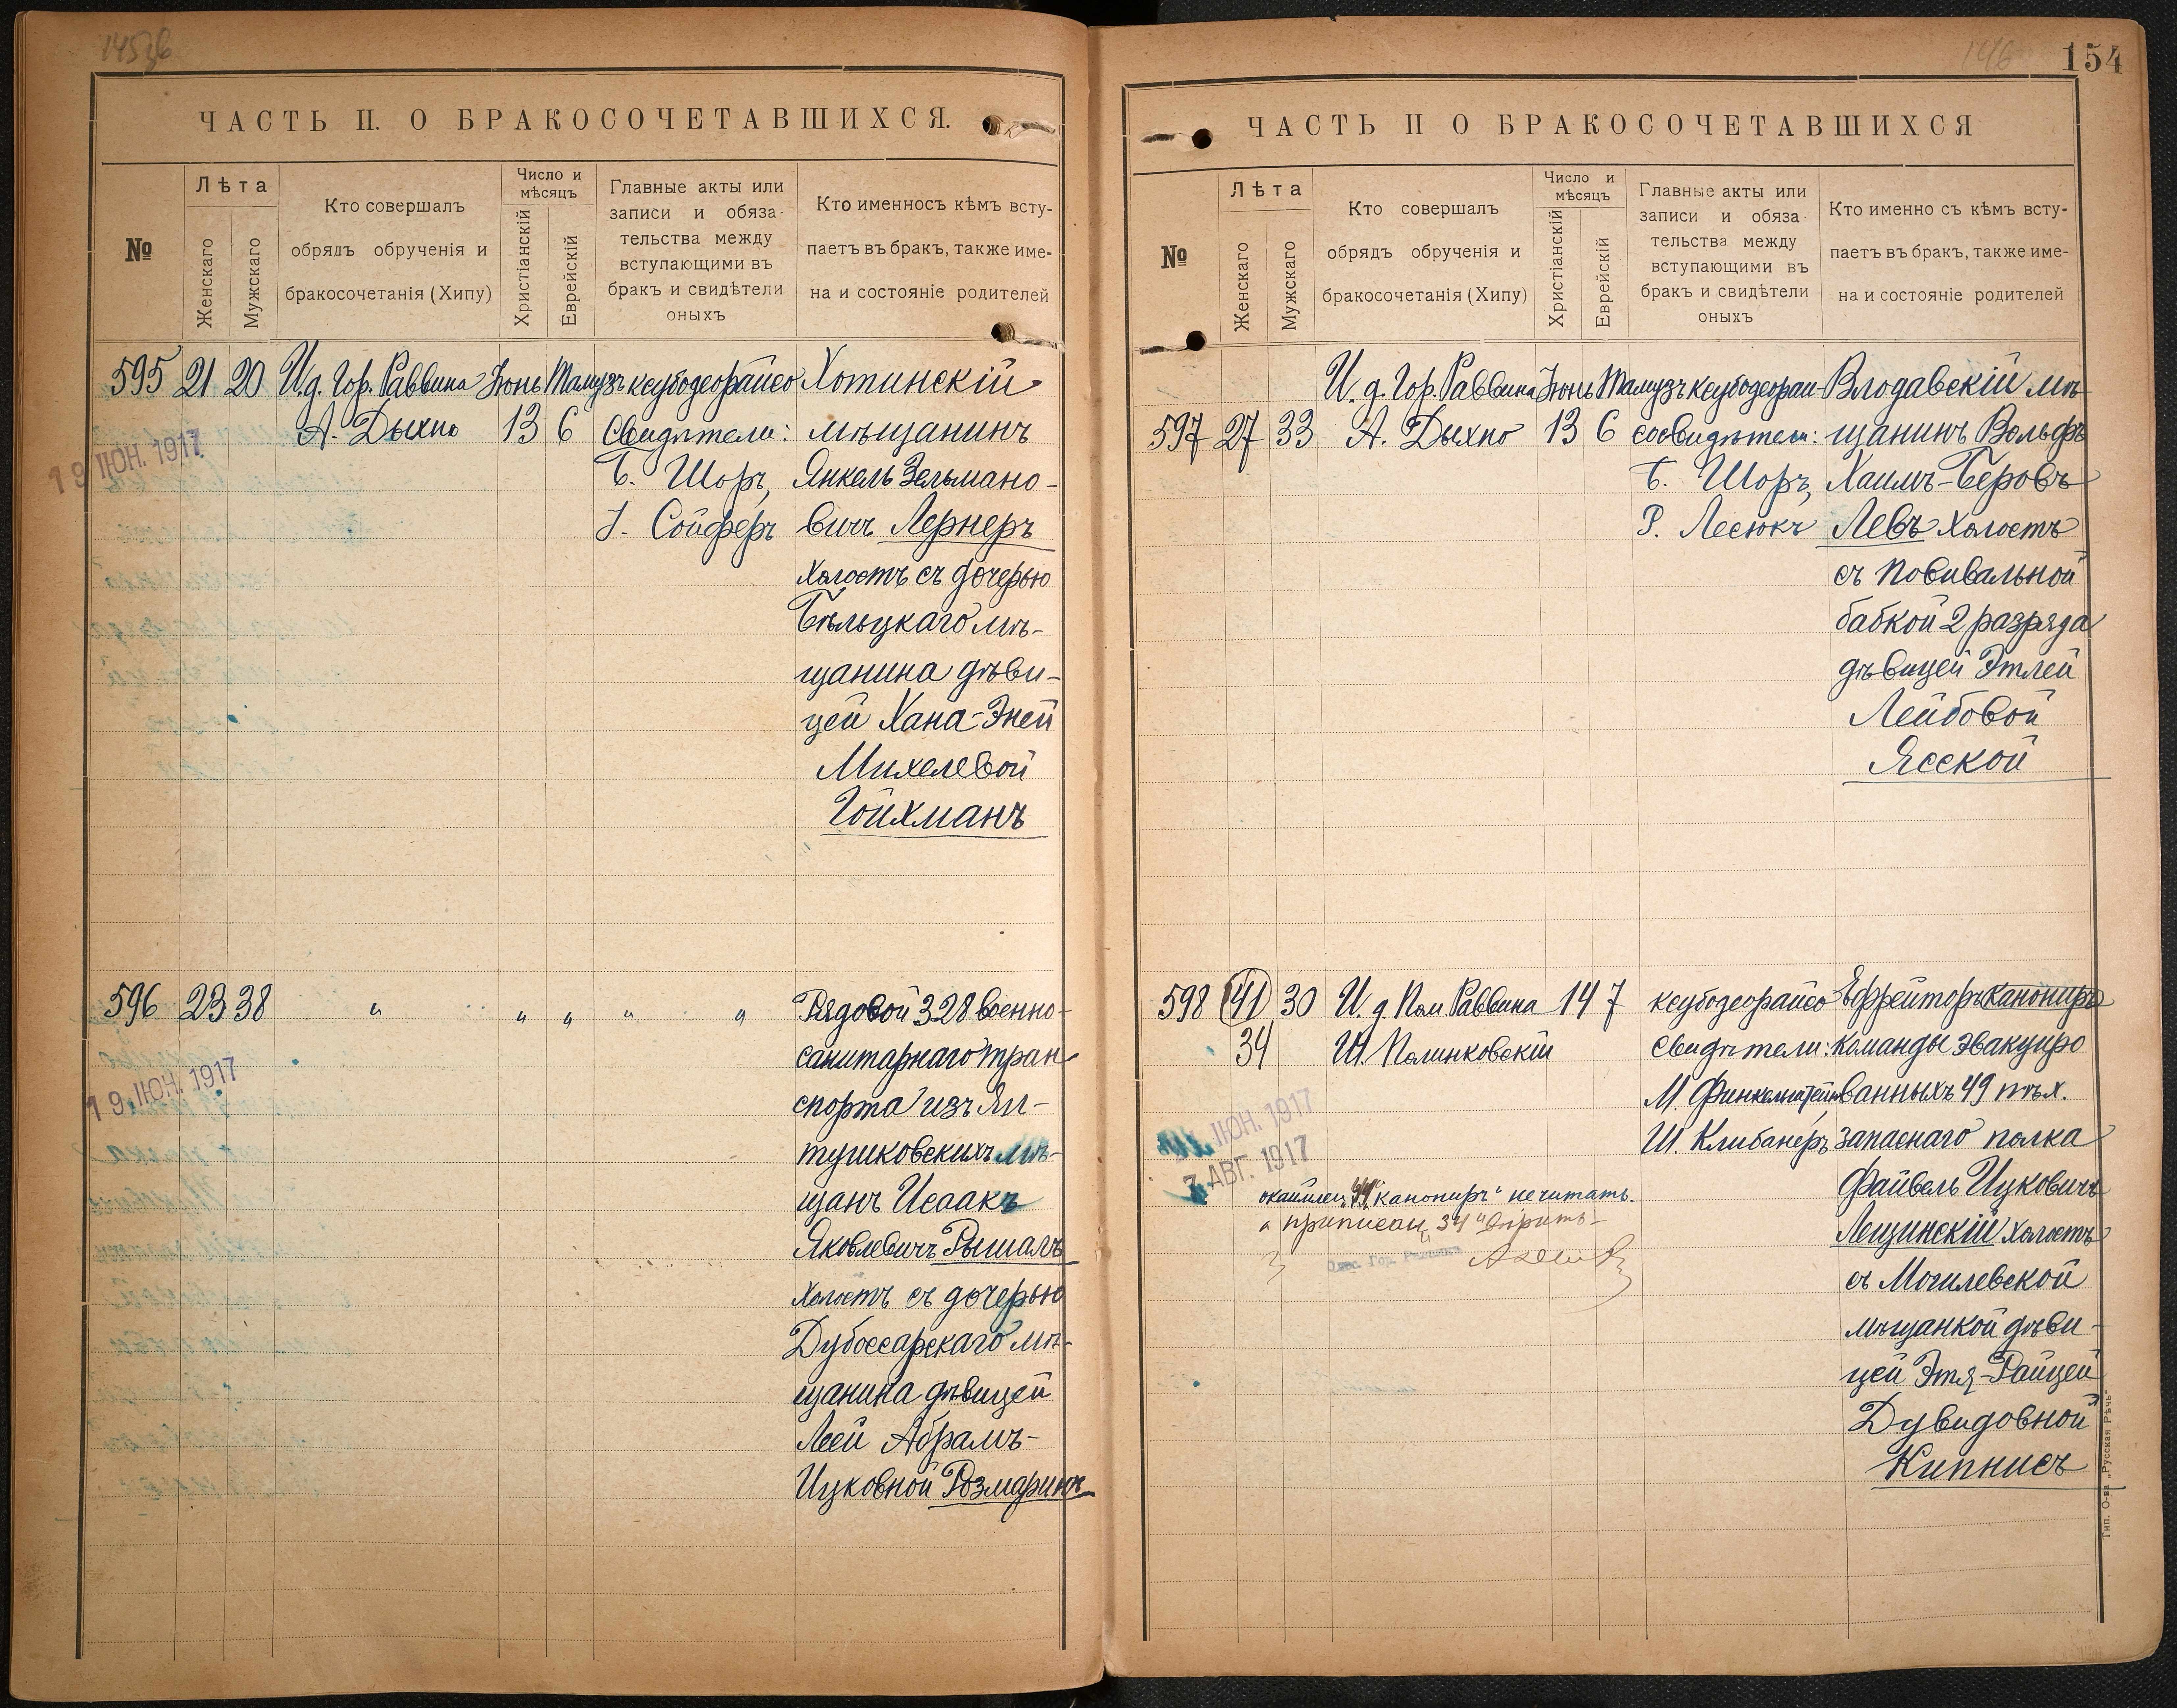 154
ЧАСТЬ II. О БРАКОСОЧЕТАВШИХСЯ.
№
Лѣта
Женскаго
Мужскаго
Кто совершалъ
обрядъ обрученія и
бракосочетанія (Хипу)
Число и
мѣсяцъ
Христіанскій
Еврейскій
Главные акты или
записи и обяза-
тельства между
вступающими въ
бракъ и свидѣтели
оныхъ
Кто именносъ кѣмъ всту-
паетъ въ бракъ, также име-
на и состояніе родителей
595 21 20 И.д. Гор. Раввина Іюнь Тамузъ ксубодеорайсо Хотинскій
А. Дыхно 13 6 свидѣтели: мѣщанинъ
19 ІЮН. 1917
Б. Шоръ, Янкель Зельмано-
І. Сойферъ вичъ Лернеръ
холостъ съ дочерью
Бѣльцкаго мѣ-
щанина дѣви-
цей Хана-Эней
Михелевой
Гойхманъ
596 23 38 " " " " " Рядовой 328 военно-
санитарнаго тран
19 ІЮН. 1917
спорта изъ Ял-
тушковскихъ мѣ-
щанъ Исаакъ
Яковлевичъ Рышалъ
холостъ съ дочерью
Дубоссарскаго мѣ-
щанина дѣвицей
Леей Абрамъ-
Ицковной Розмаринъ
ЧАСТЬ II О БРАКОСОЧЕТАВШИХСЯ
№
Лѣта
Женскаго
Мужскаго
Кто совершалъ
обрядъ обрученія и
бракосочетанія (Хипу)
Число и
мѣсяцъ
Христіанскій
Еврейскій
Главные акты или
записи и обяза-
тельства между
вступающими въ
бракъ и свидѣтели
оныхъ
Кто именно съ кѣмъ всту-
паетъ въ бракъ, также име-
на и состояніе родителей
И. д. Гор. Раввина Іюнь Тамузъ ксубодеорай- Влодавскій мѣ-
597 27 33 А. Дыхно 13 6 со свидѣтели: щанинъ Вольфъ
Б. Шоръ, Хаимъ-Беровъ
Р. Лесюкъ Левъ холостъ
съ повивальной
бабкой 2 разряда
дѣвицей Этлей
Лейбовой
Ясской
598 41 30 И. д. Пом Раввина 14 7 ксубодеорайсо Ефрейторъ канониръ
34 Ш. Полинковскій свидѣтели: команды эвакуиро
М. Финкельштейнъ ванныхъ 49 пѣх.
ІЮН. 1917
Ш. Клибанеръ запаснаго полка
7 АВГ. 1917
Файвель Ицковичъ
"41" "канониръ" не читать.
а "34" вѣрить-
Лещинскій холостъ
съ Могилевской
мѣщанкой дѣви-
цей Этя-Райцей
Дувидовной
Кипнисъ
Тип. О-ва „Русская Рѣчь"